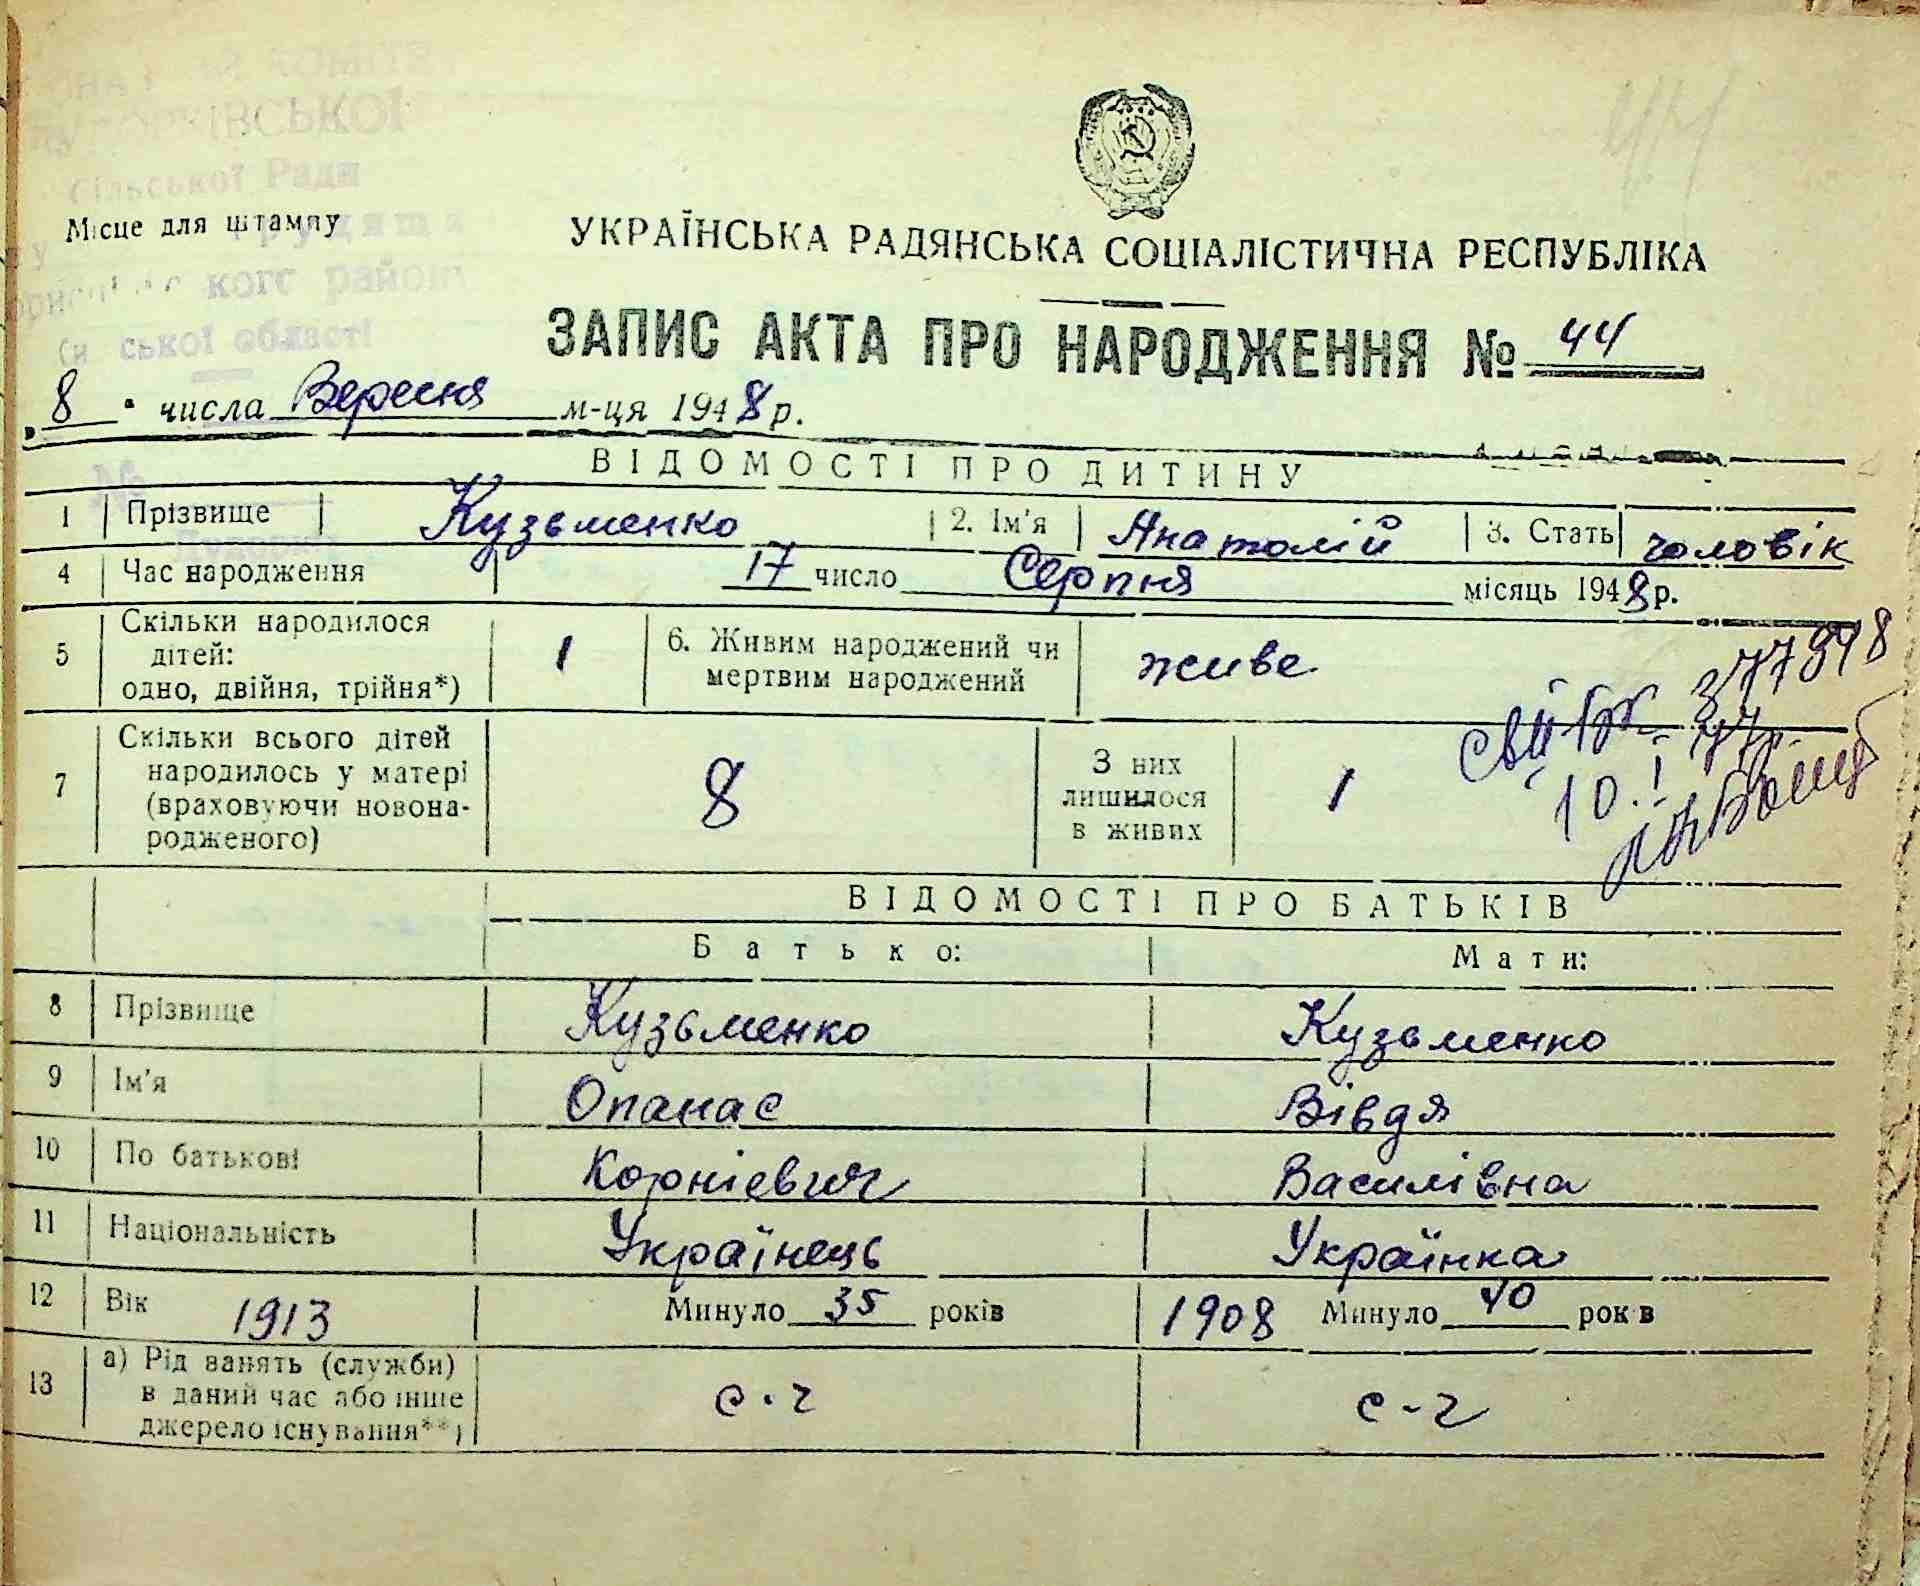 КОМІТЕТ
ІВСЬКОЇ
Сільської Ради
Місце для штампу
кого району
ської області
УКРАЇНСЬКА РАДЯНСЬКА СОЦІАЛІСТИЧНА РЕСПУБЛІКА
ЗАПИС АКТА ПРО НАРОДЖЕННЯ № 44
„8" числа Вересня м-ця 1948 р.
№
ВІДОМОСТІ ПРО ДИТИНУ
1 Прізвище Кузьменко 2. Ім'я Анатолій 3. Стать чоловік
4 Час народження 17 число Серпня місяць 1948 р.
5 Скільки народилося дітей: одно, двійня, трійня*) 1 6. Живим народжений чи мертвим народжений живе
377948
10.I 77
7 Скільки всього дітей народилось у матері (враховуючи новонародженого) 8 З них лишилося в живих 1
ВІДОМОСТІ ПРО БАТЬКІВ
Батько: Мати:
8 Прізвище Кузьменко Кузьменко
9 Ім'я Опанас Вівдя
10 По батькові Корнієвич Василівна
11 Національність Українець Українка
12 Вік 1913 Минуло 35 років 1908 Минуло 40 років
13 а) Рід занять (служби) в даний час або інше джерело існування**) с-г с-г